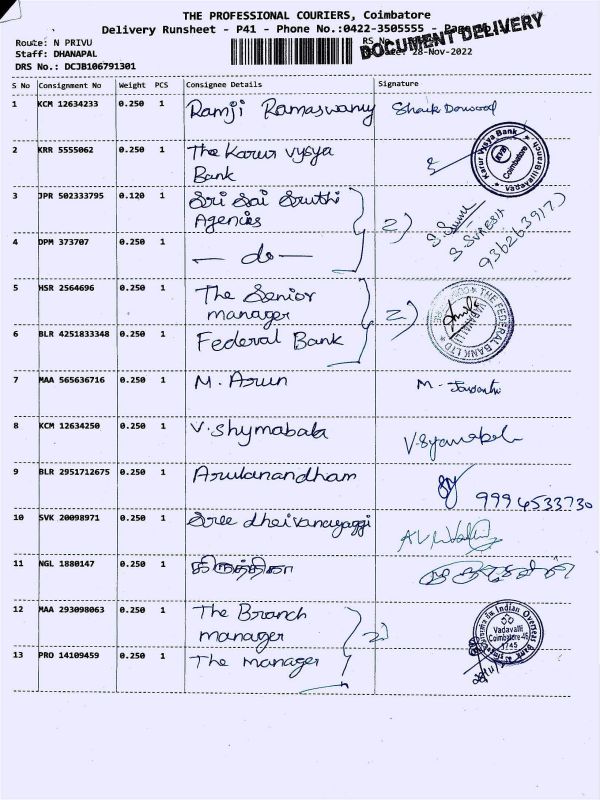 THE PROFESSIONAL COURIERS, Coimbatore
Delivery Runsheet - P41 - Phone No.:0422-3505555 - Page
Route: N PRIVU
DOCUMENT DELIVERY
Staff: DHANAPAL
28-Nov-2022
DRS No.: DCJB106791301
S No Consignment No Weight PCS Consignee Details Signature
1 KCM 12634233 0.250 1 Ramji Ramaswamy
2 KRR 5555062 0.250 1 The Karur vysya
Bank
Karur Vysya Bank
KVB
Coimbatore
Vadavalli Branch
3 JPR 502333795 0.120 1 Sri Sai Sruthi
Agencies
2)
S. SURESH
4 DPM 373707 0.250 1 — do —
5 HSR 2564696 0.250 1 The Senior
manager
2)
6 BLR 4251833348 0.250 1 Federal Bank
THE FEDERAL BANK LTD
7 MAA 565636716 0.250 1 M. Arun
8 KCM 12634250 0.250 1 V. Shymabala
9 BLR 2951712675 0.250 1 Arulanandham
9994533730
10 SVK 20098971 0.250 1 Sree dheivanayaggi
11 NGL 1880147 0.250 1
12 MAA 293098063 0.250 1 The Branch
manager
2)
Indian Overseas Bank
Vadavalli
Coimbatore-46
1745
13 PRO 14109459 0.250 1 The manager